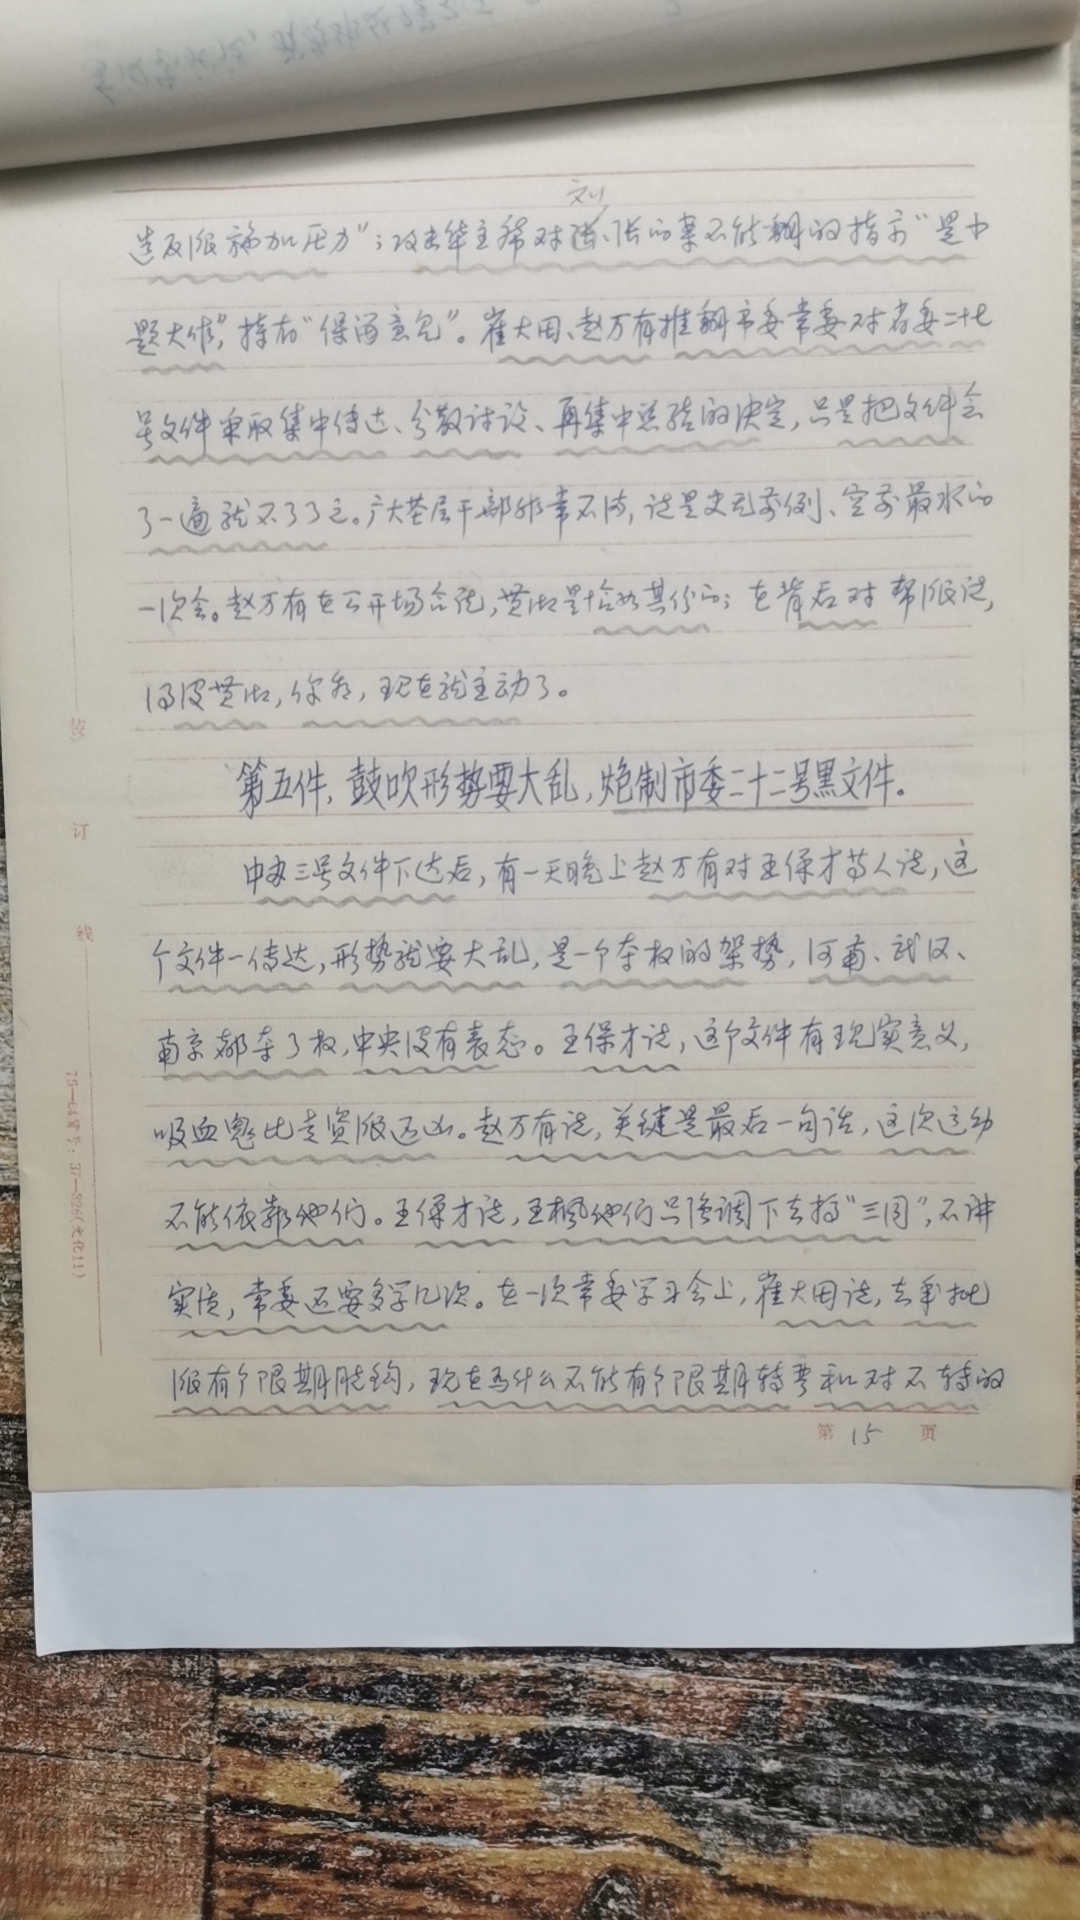 刘
造反派施加压力”；攻击华主席对张的案不能翻的指示“是小
题大作”，持有“保留意见”。崔大田、赵万有推翻市委常委对省委二十七
号文件采取集中传达、分散讨论、再集中总结的决定，只是把文件念
了一遍就不了了之。广大基层干部非常不满，说是史无前例、空前最水的
一次会。赵万有在公开场合说，黄必是恰如其份的；在背后对帮派说，
你看，现在就主动了。
第五件，鼓吹形势要大乱，炮制市委二十二号黑文件。
中办三号文件下达后，有一天晚上赵万有对王保才等人说，这
个文件一传达，形势就要大乱，是一个夺权的架势，河南、武汉、
南京都夺了权，中央没有表态。王保才说，这个文件有现实意义，
吸血鬼比走资派还凶。赵万有说，关键是最后一句话，这次运动
不能依靠他们。王保才说，王枫他们只强调下去搞“三同”，不讲
实质，常委还要多学几次。在一次常委学习会上，崔大田说，去年批
派有个限期脱钩，现在为什么不能有个限期转弯和对不转的
第 15 页
装
订
线